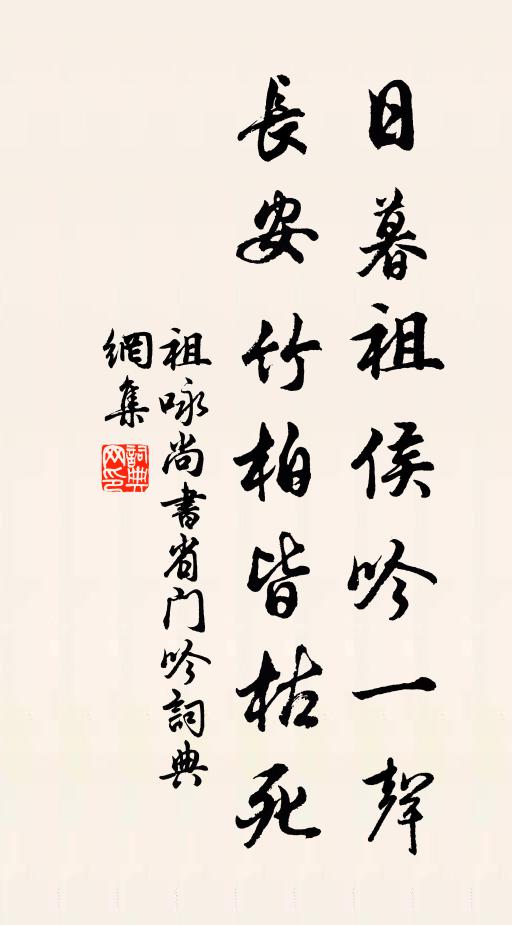 日暮祖侯吟一聲
長安竹柏皆枯死
祖咏尚書省门吟詞典
網集
詞典
网印